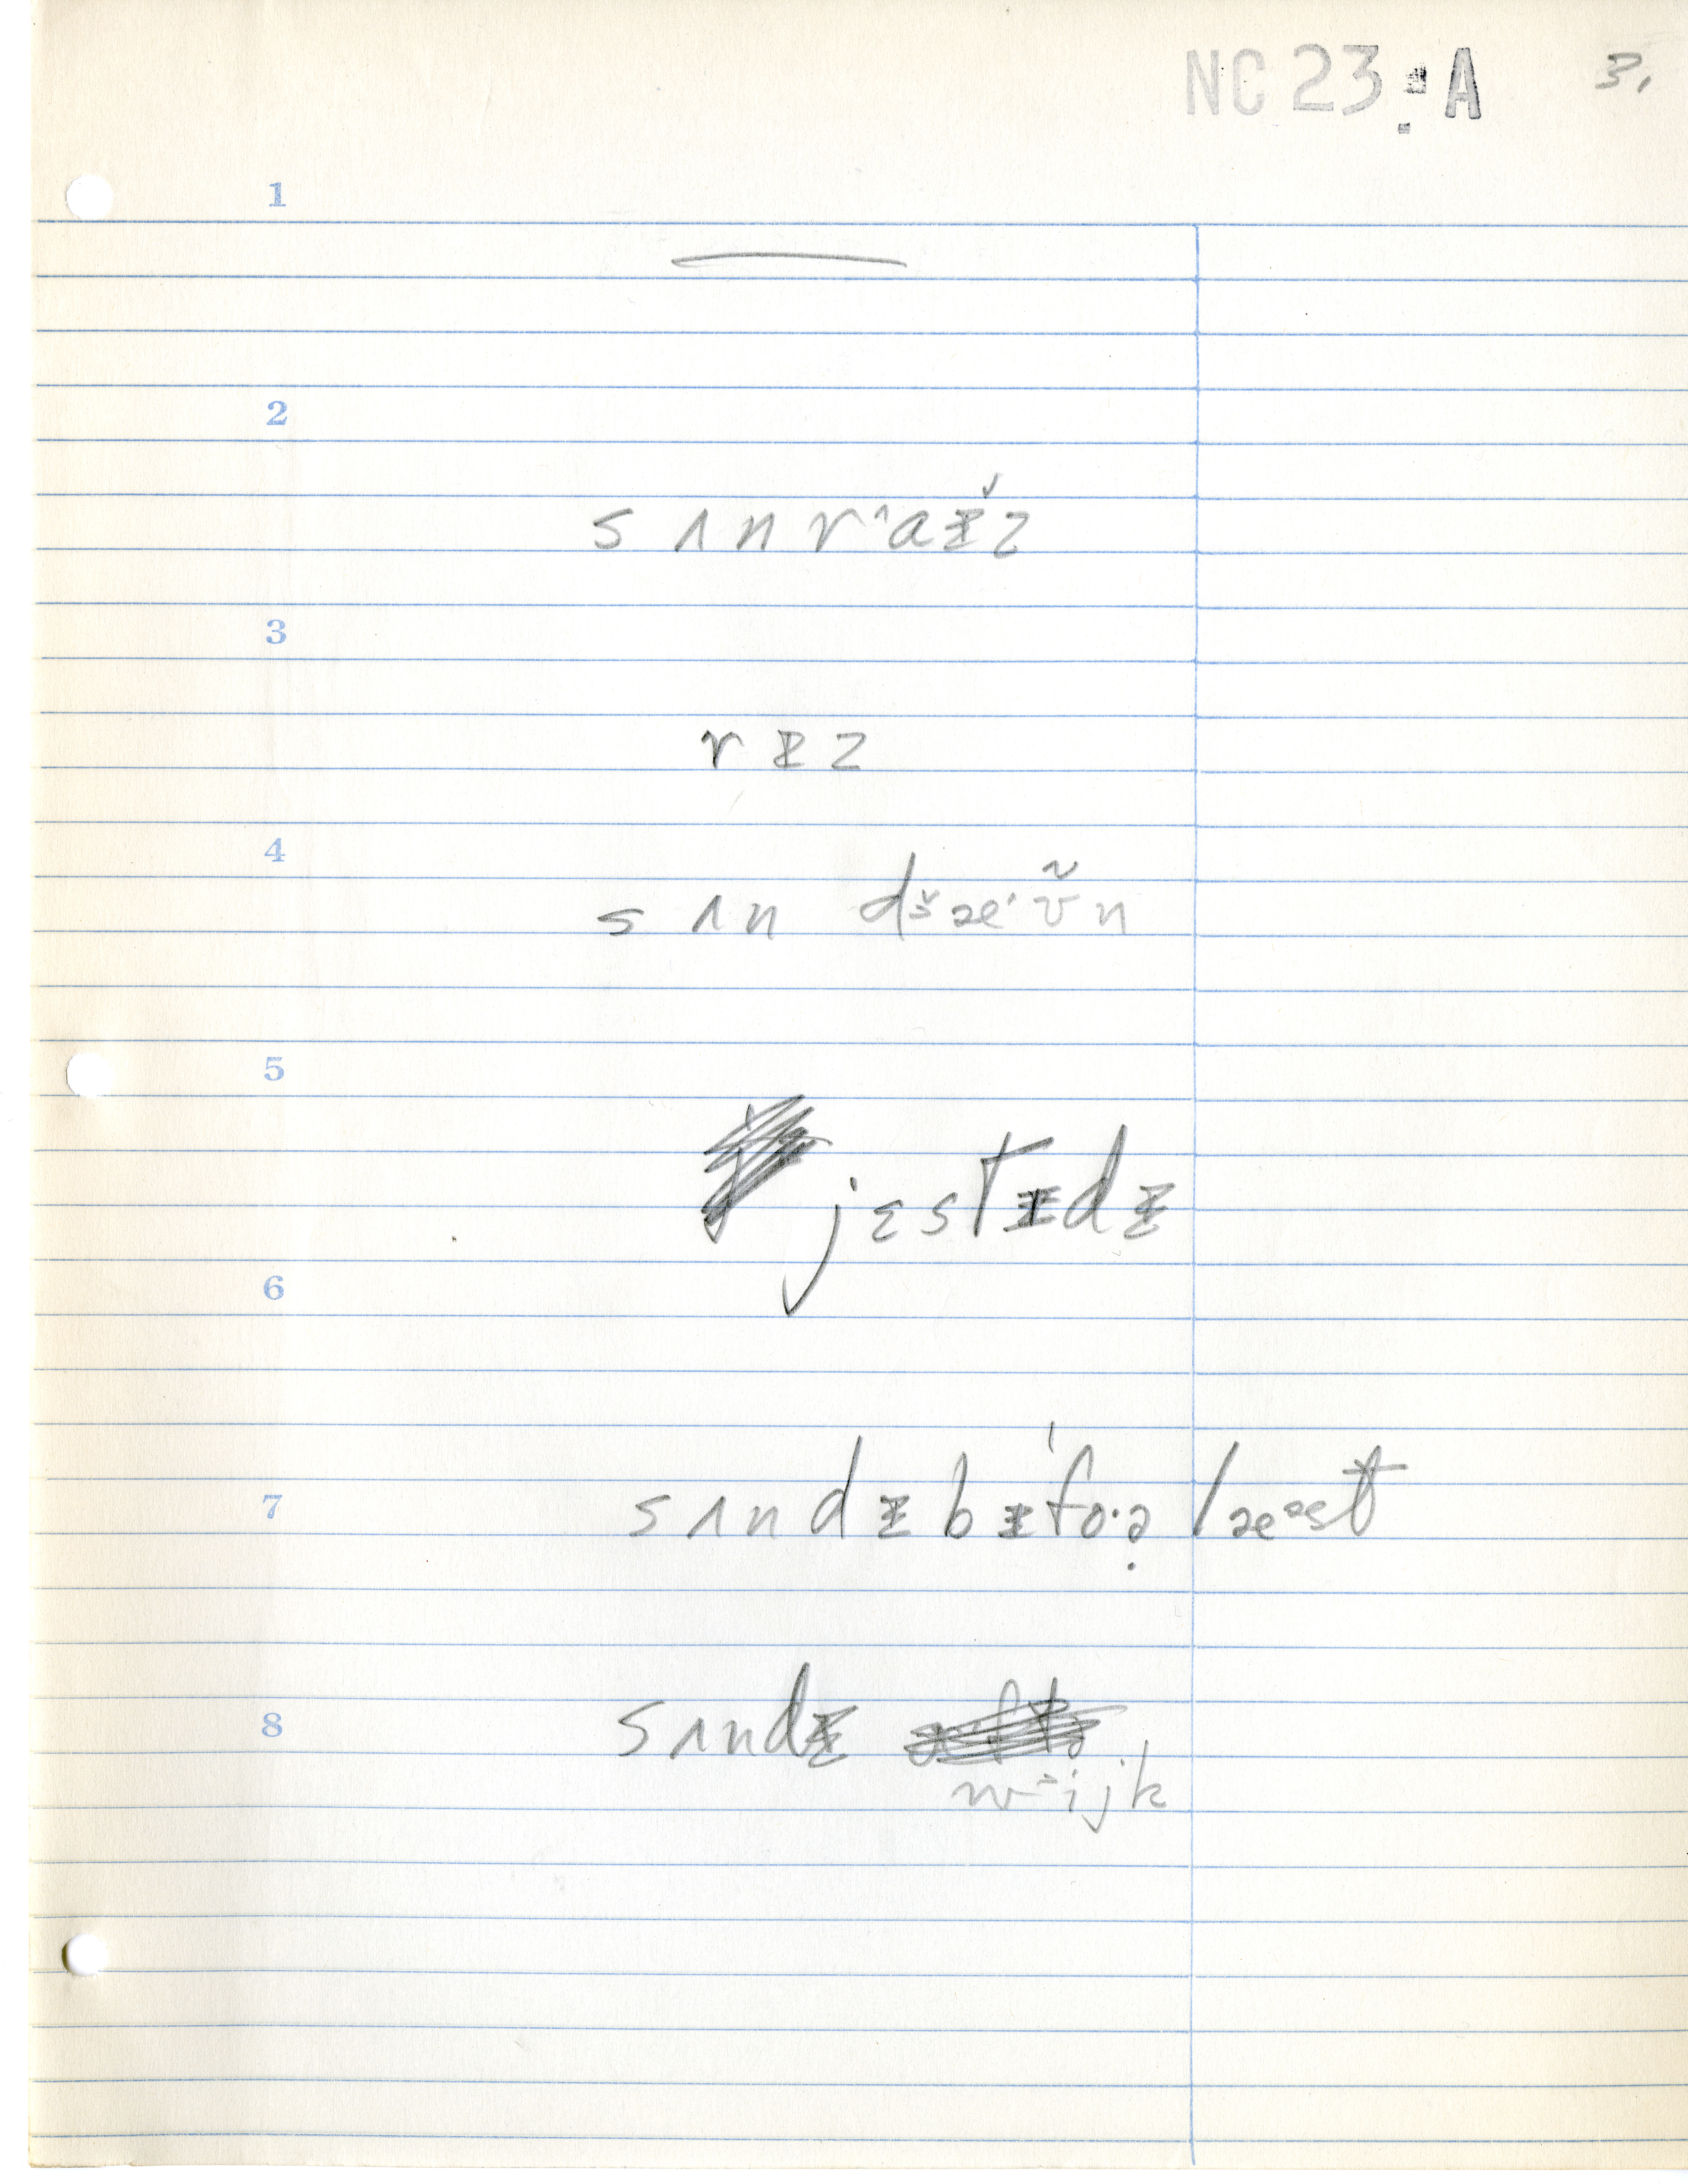 NC 23 A 3.
1
2
s ʌ n r ˄a ɪ̵̌ z
3
r ɪ̵ z
4
s ʌ n dš æ' ʊ̃ n
5
j ɛ s t ɪ̵ d ɪ̵
6
7
s ʌ n d ɪ̵ b ɪ̵ ' f o · ə̣ l æ ᵊ s t
8
s ʌ n d ɪ̵
w ˃ i j k